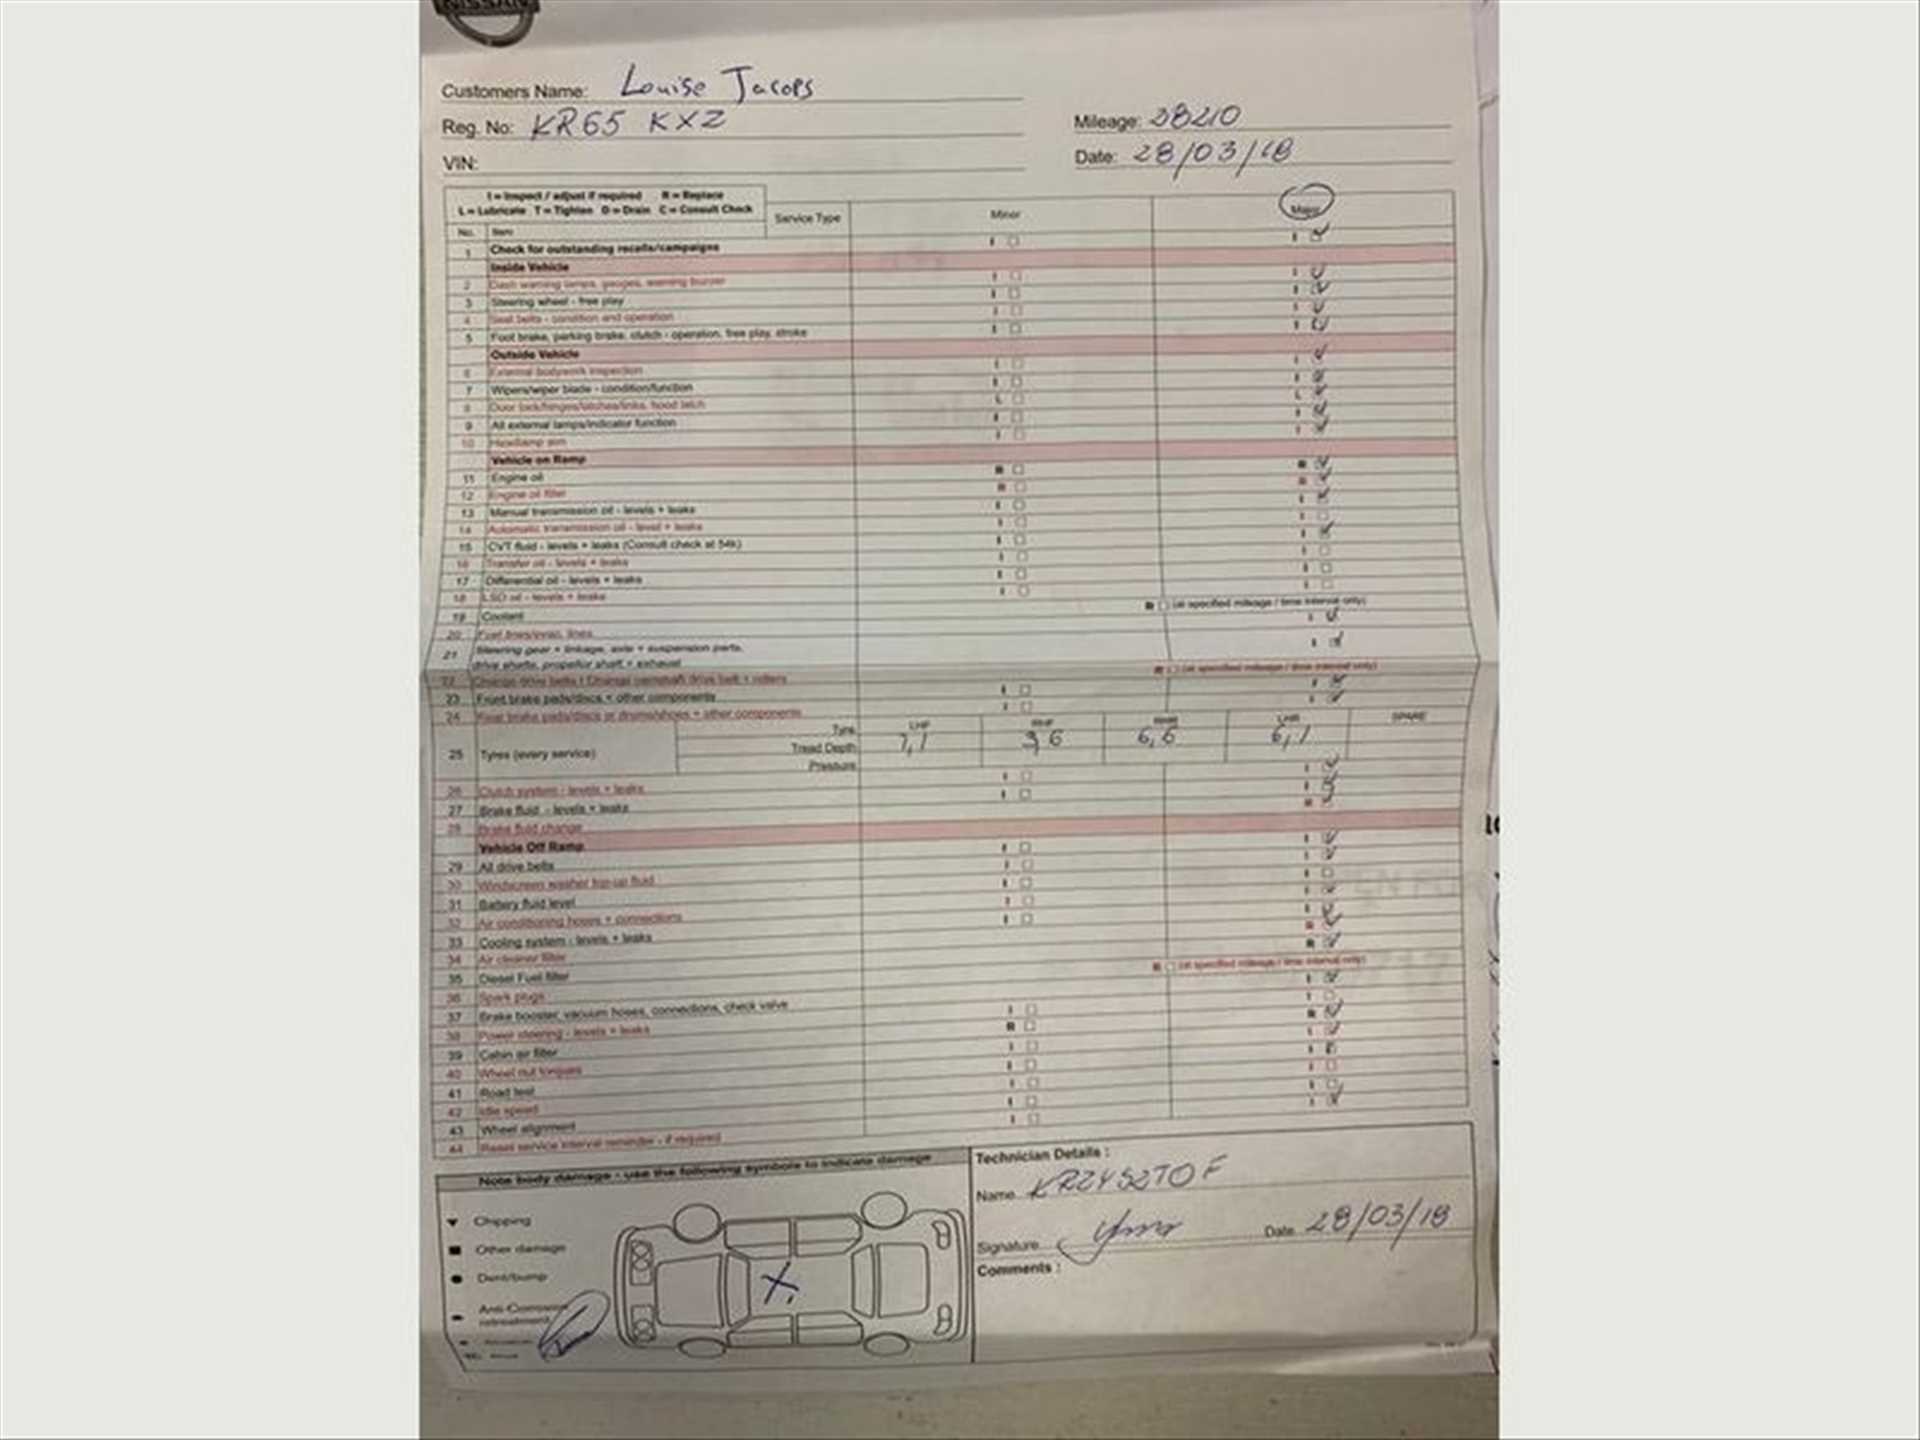 NISSAN
Customers Name: Louise Jacobs
Reg. No: KR65 KXZ
Mileage: 38210
VIN:
Date: 28/03/18
I = Inspect / adjust if required R = Replace
L = Lubricate T = Tighten D = Drain C = Consult Check
Service Type Minor Major
No. Item
1 Check for outstanding recalls/campaigns I I
Inside Vehicle
2 Dash warning lamps, gauges, warning buzzer I I
3 Steering wheel - free play I I
4 Seat belts - condition and operation I I
5 Foot brake, parking brake, clutch - operation, free play, stroke I I
Outside Vehicle
6 External bodywork inspection I I
7 Wipers/wiper blade - condition/function I I
8 Door lock/hinges/latches/links, hood latch L L
9 All external lamps/indicator function I I
10 Headlamp aim I I
Vehicle on Ramp
11 Engine oil R R
12 Engine oil filter R R
13 Manual transmission oil - levels + leaks I I
14 Automatic transmission oil - level + leaks I I
15 CVT fluid - levels + leaks (Consult check at 54k) I I
16 Transfer oil - levels + leaks I I
17 Differential oil - levels + leaks I I
18 LSD oil - levels + leaks I I
19 Coolant R (at specified mileage / time interval only)
20 Fuel lines/evap. lines I
21 Steering gear + linkage, axle + suspension parts,
drive shafts, propellor shaft + exhaust I
22 Change drive belts / Change camshaft drive belt + rollers R (at specified mileage / time interval only)
23 Front brake pads/discs + other components I I
24 Rear brake pads/discs or drums/shoes + other components I I
25 Tyres (every service)
Tyre LHF RHF RHR LHR SPARE
Tread Depth 7,1 3,6 6,6 6,1
Pressure
26 Clutch system - levels + leaks I I
27 Brake fluid - levels + leaks I I
28 Brake fluid change R
Vehicle Off Ramp
29 All drive belts I I
30 Windscreen washer top-up fluid I I
31 Battery fluid level I I
32 Air conditioning hoses + connections I I
33 Cooling system - levels + leaks I I
34 Air cleaner filter R
35 Diesel Fuel filter R
36 Spark plugs R (at specified mileage / time interval only)
37 Brake booster, vacuum hoses, connections, check valve I
38 Power steering - levels + leaks I I
39 Cabin air filter R R
40 Wheel nut torques I I
41 Road test I I
42 Idle speed I I
43 Wheel alignment I I
44 Reset service interval reminder - if required I I
Note body damage - use the following symbols to indicate damage
Chipping
Other damage
Dent/bump
Anti-Corrosion
retreatment
Technician Details :
Name KRZYSZTOF
Signature
Date 28/03/18
Comments :